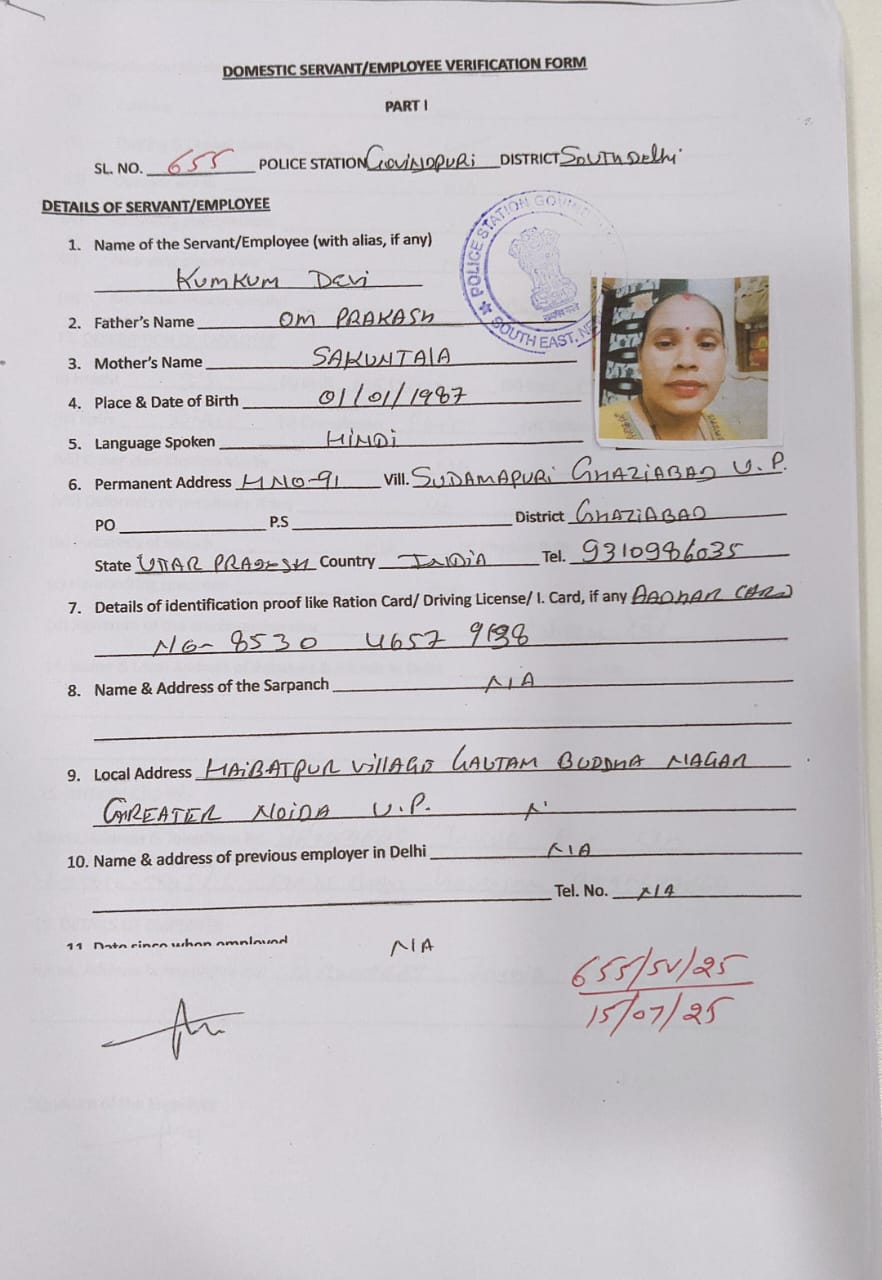 DOMESTIC SERVANT/EMPLOYEE VERIFICATION FORM
PART I
SL. NO. 655 POLICE STATION GOVINDPURI DISTRICT SOUTH DELHI
DETAILS OF SERVANT/EMPLOYEE
POLICE STATION GOVIN
SOUTH EAST, NEW
1. Name of the Servant/Employee (with alias, if any)
KUMKUM DEVI
2. Father's Name OM PRAKASH
3. Mother's Name SAKUNTALA
4. Place & Date of Birth 01/01/1987
5. Language Spoken HINDI
6. Permanent Address H NO-91 Vill. SUDAMAPURI GHAZIABAD U.P.
PO P.S District GHAZIABAD
State UTAR PRADESH Country INDIA Tel. 9310986035
7. Details of identification proof like Ration Card/ Driving License/ I. Card, if any AADHAR CARD
NO- 8530 4657
8. Name & Address of the Sarpanch N/A
9. Local Address HAIBATPUR VILLAGE GAUTAM BUDDHA NAGAR
GREATER NOIDA U.P.
10. Name & address of previous employer in Delhi N/A
Tel. No. N/A
11. Date since when employed N/A
655/SV/25
15/07/25